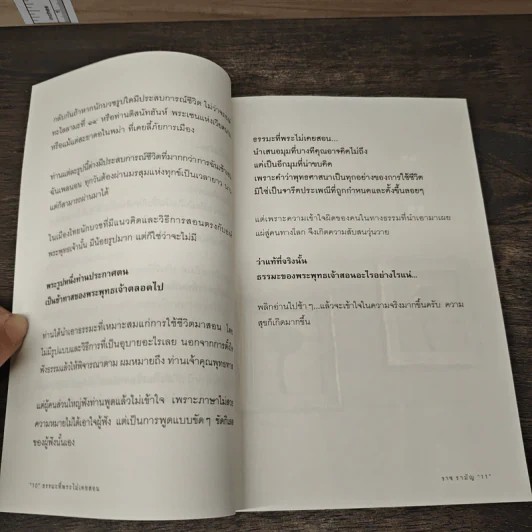 กลับกันถ้าหากนักบวชรูปใดมีประสบการณ์ชีวิต ไม่ว่าจะ
ทะไลลามะที่ ๑๔ หรือท่านติสนัทฮันห์ พระเซนแห่งเวียดนาม
หรือแม้แต่สะยาดอในพม่า ที่เคยลี้ภัยการเมือง
ท่านแต่ละรูปนี้ต่างมีประสบการณ์ชีวิตที่มากกว่าการฉันเช้า
ฉันเพลนอน ทุกวันต้องผ่านมรสุมแห่งทุกข์เป็นเวลายาว
แต่ก็สามารถผ่านมาได้
ในเมืองไทยนักบวชที่มีแนวคิดและวิธีการสอนตรงกับ
พระพุทธเจ้านั้น มีน้อยรูปมาก แต่ก็ใช่ว่าจะไม่มี
พระรูปหนึ่งท่านประกาศตน
เป็นข้าทาสของพระพุทธเจ้าตลอดไป
ท่านได้นำเอาธรรมะที่เหมาะสมแก่การใช้ชีวิตมาสอน โดย
ไม่มีรูปแบบและวิธีการที่เป็นอุบายอะไรเลย นอกจากการตั้งใจ
ฟังธรรมแล้วให้พิจารณาตาม ผมหมายถึง ท่านเจ้าคุณพุทธทาส
แต่ผู้คนส่วนใหญ่ฟังท่านพูดแล้วไม่เข้าใจ เพราะภาษาไม่
ความหมายไม่ได้เอาใจผู้ฟัง แต่เป็นการพูดแบบขัดๆ ขัดกิเลส
ของผู้ฟังนั่นเอง
"10" ธรรมะที่พระไม่เคยสอน
ธรรมะที่พระไม่เคยสอน...
นำเสนอมุมที่บางทีคุณอาจคิดไม่ถึง
แต่เป็นอีกมุมที่น่าขบคิด
เพราะคำว่าพุทธศาสนาเป็นทุกอย่างของการใช้ชีวิต
มิใช่เป็นจารีตประเพณีที่ถูกกำหนดและตั้งขึ้นลอยๆ
แต่เพราะความเข้าใจผิดของคนในทางธรรมที่นำเอามาเผย
แผ่สู่คนทางโลก จึงเกิดความสับสนวุ่นวาย
ว่าแท้ที่จริงนั้น
ธรรมะของพระพุทธเจ้าสอนอะไรอย่างไรแน่...
พลิกอ่านไปช้าๆ...แล้วจะเข้าใจในความจริงมากขึ้นครับ ความ
สุขก็เกิดมากขึ้น
ราช รามัญ "11"